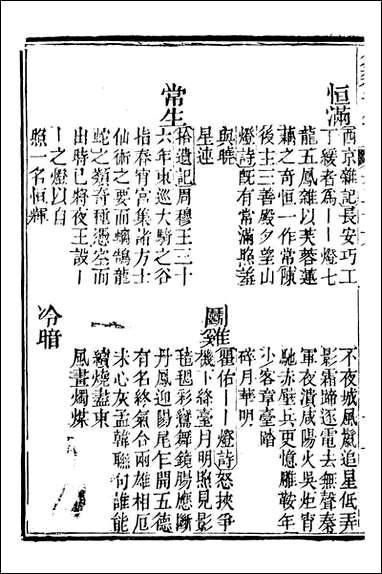 恒滿
西京雜記長安巧工
丁緩者為丨丨燈七
龍五鳳雜以芙蓉蓮
藕之奇恒一作常陳
後主三善殿夕望山
燈詩既有常滿照誰
與曉
星連
常生
拾遺記周穆王三十
六年東巡大騎之谷
指春宵宮集諸方士
仙術之要而螭鵠龍
蛇之類奇種憑空而
出時已將夜王設丨
丨之燈以自
照一名恒輝
不夜城風鬣追星低弄
影霜蹄逐電去無聲秦
軍夜潰咸陽火吳炬宵
馳赤壁兵更憶雕鞍年
少客章臺踏
碎月華明
鬬雞
瞿佑丨丨燈詩怒挾爭
機下絳臺月明照見影
毰毸彩鸞舞鏡腸應斷
丹鳳迎陽尾乍開五德
有名終氣合兩雄相厄
未心灰孟韓聯句誰能
續燒盡東
風畫燭煤
冷暗